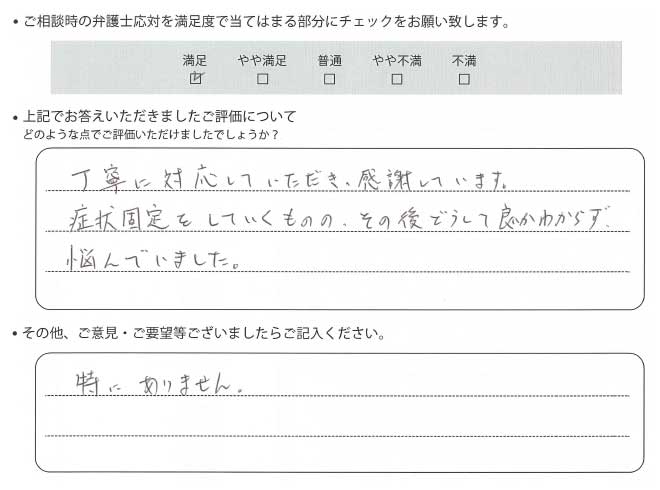 • ご相談時の弁護士応対を満足度で当てはまる部分にチェックをお願い致します。
満足 やや満足 普通 やや不満 不満
☑ □ □ □ □
• 上記でお答えいただきましたご評価について
どのような点でご評価いただけましたでしょうか？
丁寧に対応していただき、感謝しています。
症状固定をしていくものの、その後どうして良かわからず、
悩んでいました。
• その他、ご意見・ご要望等ございましたらご記入ください。
特にありません。